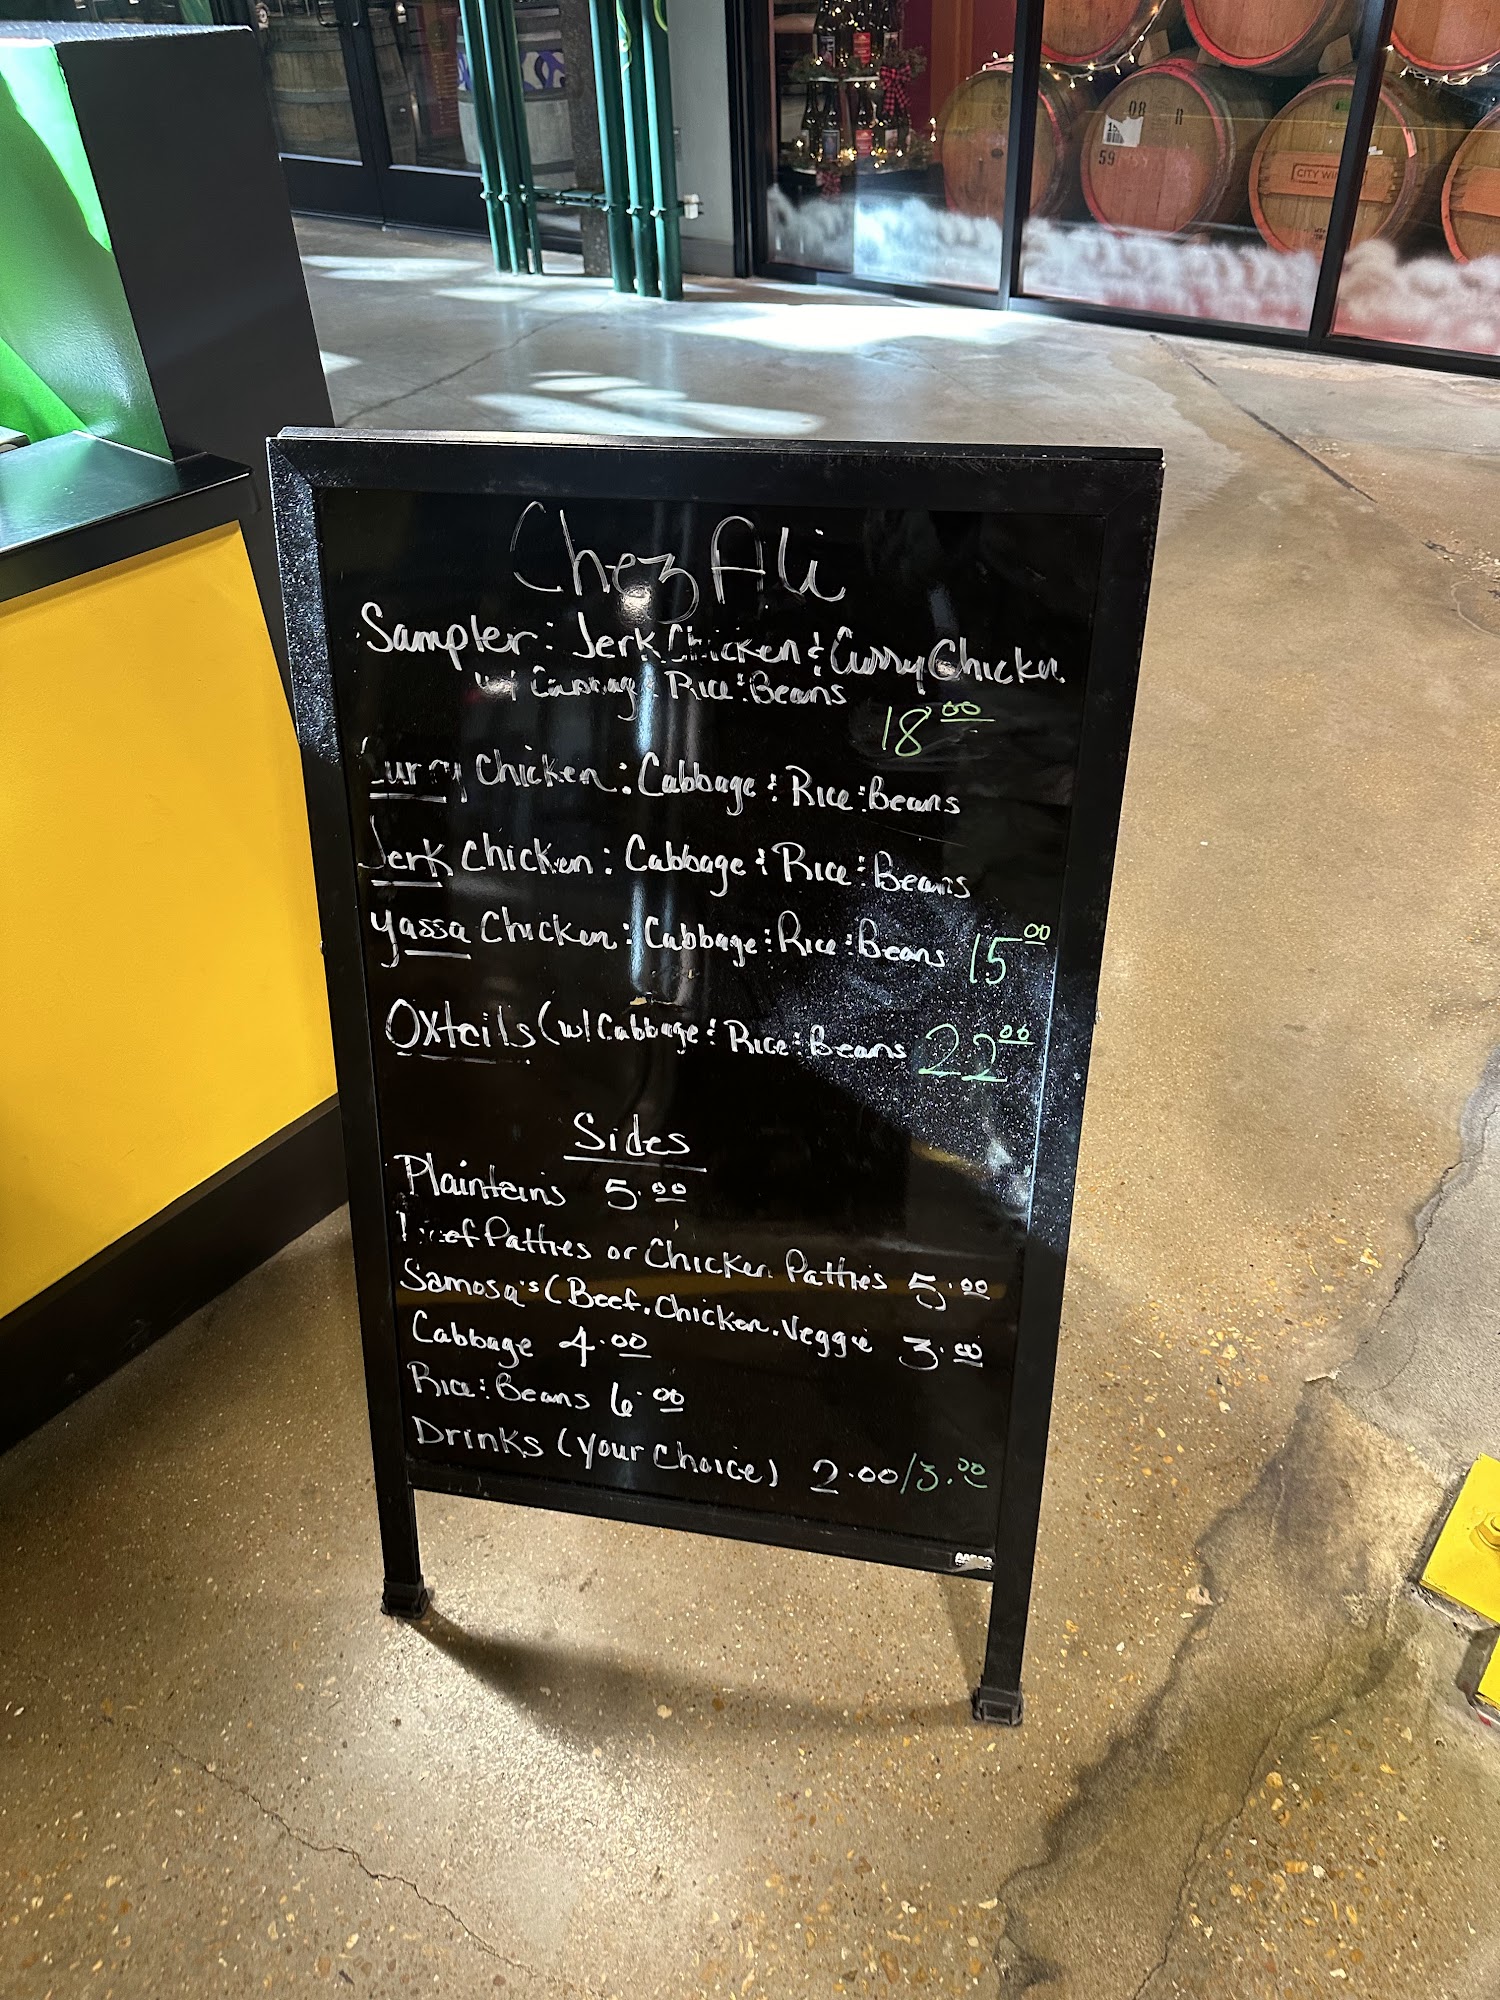 08
R
59
CITY WI
Chez Ali
Sampler: Jerk Chicken & Curry Chicken
w/ Cabbage & Rice & Beans
18.00
Curry Chicken: Cabbage & Rice & Beans
Jerk Chicken: Cabbage & Rice & Beans
Yassa Chicken: Cabbage & Rice & Beans 15.00
Oxtails (w/ Cabbage & Rice & Beans 22.00
Sides
Plaintains 5.00
Beef Patties or Chicken Patties 5.00
Samosa's (Beef. Chicken. Veggie 3.00
Cabbage 4.00
Rice & Beans 6.00
Drinks (your choice) 2.00/3.00